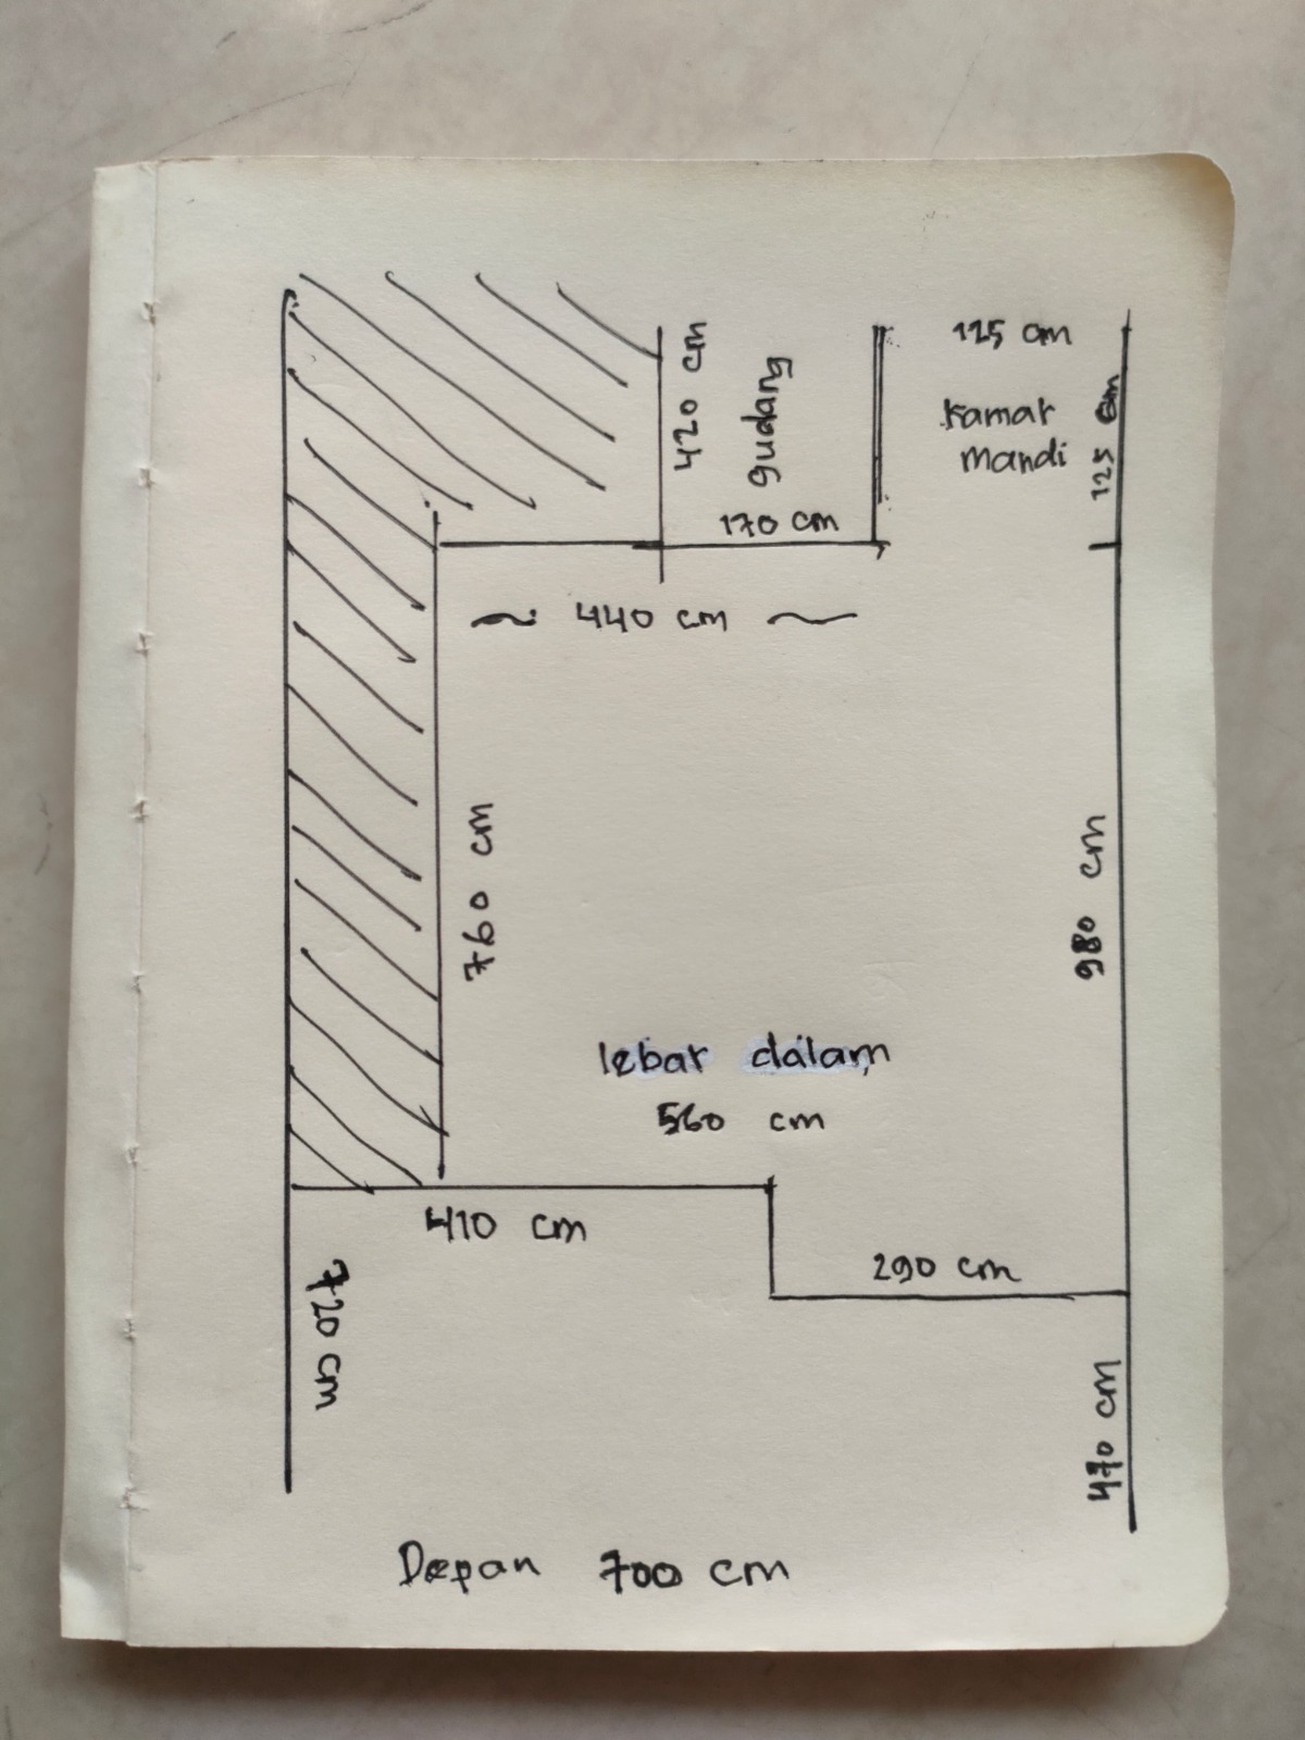 125 cm
420 cm
gudang
kamar
mandi
125 cm
170 cm
~ 440 cm ~
760 cm
980 cm
lebar dalam
560 cm
410 cm
290 cm
720 cm
470 cm
Depan 700 cm